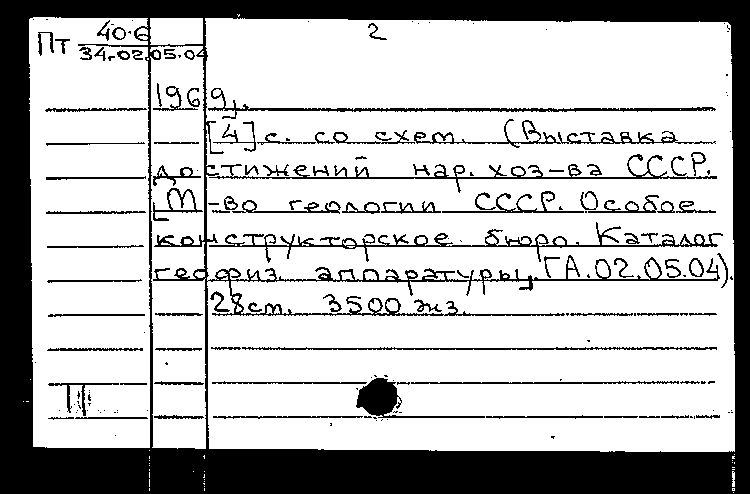 2
Пт 40-6
34-02.05.04
1969].
[4] с. со схем. (Выставка
достижений нар. хоз-ва СССР.
[М-во геологии СССР. Особое
конструкторское бюро. Каталог
геофиз. аппаратуры], ГА.02.05.04).
28см. 3500 экз.